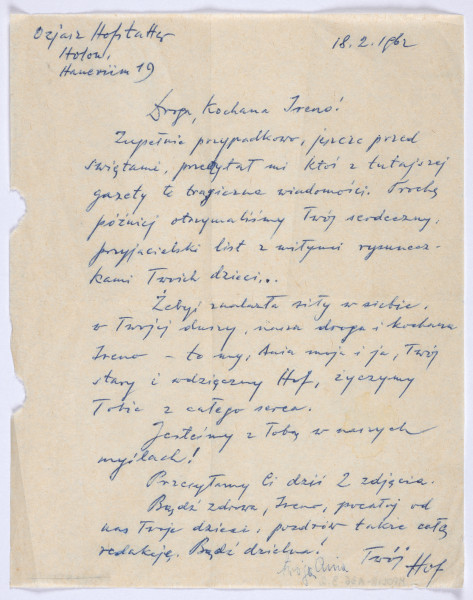 Ozjasz Hofstatter
Holon,
Haneviim 19
18.2.1962
Droga, Kochana Ireno!
Zupełnie przypadkowo, jeszcze przed
świętami, przeczytał mi ktoś z tutajszej
gazety te tragiczne wiadomości. Trochę
później otrzymaliśmy Twój serdeczny,
przyjacielski list z miłymi rysunecz-
kami Twoich dzieci...
Żebyś znalazła siły w siebie,
w Twojej duszy, nasza droga i kochana
Ireno – to my, Ania moja i ja, Twój
stary i wdzięczny Hof, życzymy
Tobie z całego serca.
Jesteśmy z Tobą w naszych
myślach!
Przesyłamy Ci dziś 2 zdjęcia.
Bądź zdrowa, Ireno, pocałuj od
nas Twoje dzieci, pozdrów także całą
redakcję. Bądź dzielna!
Twój Hof
Ania